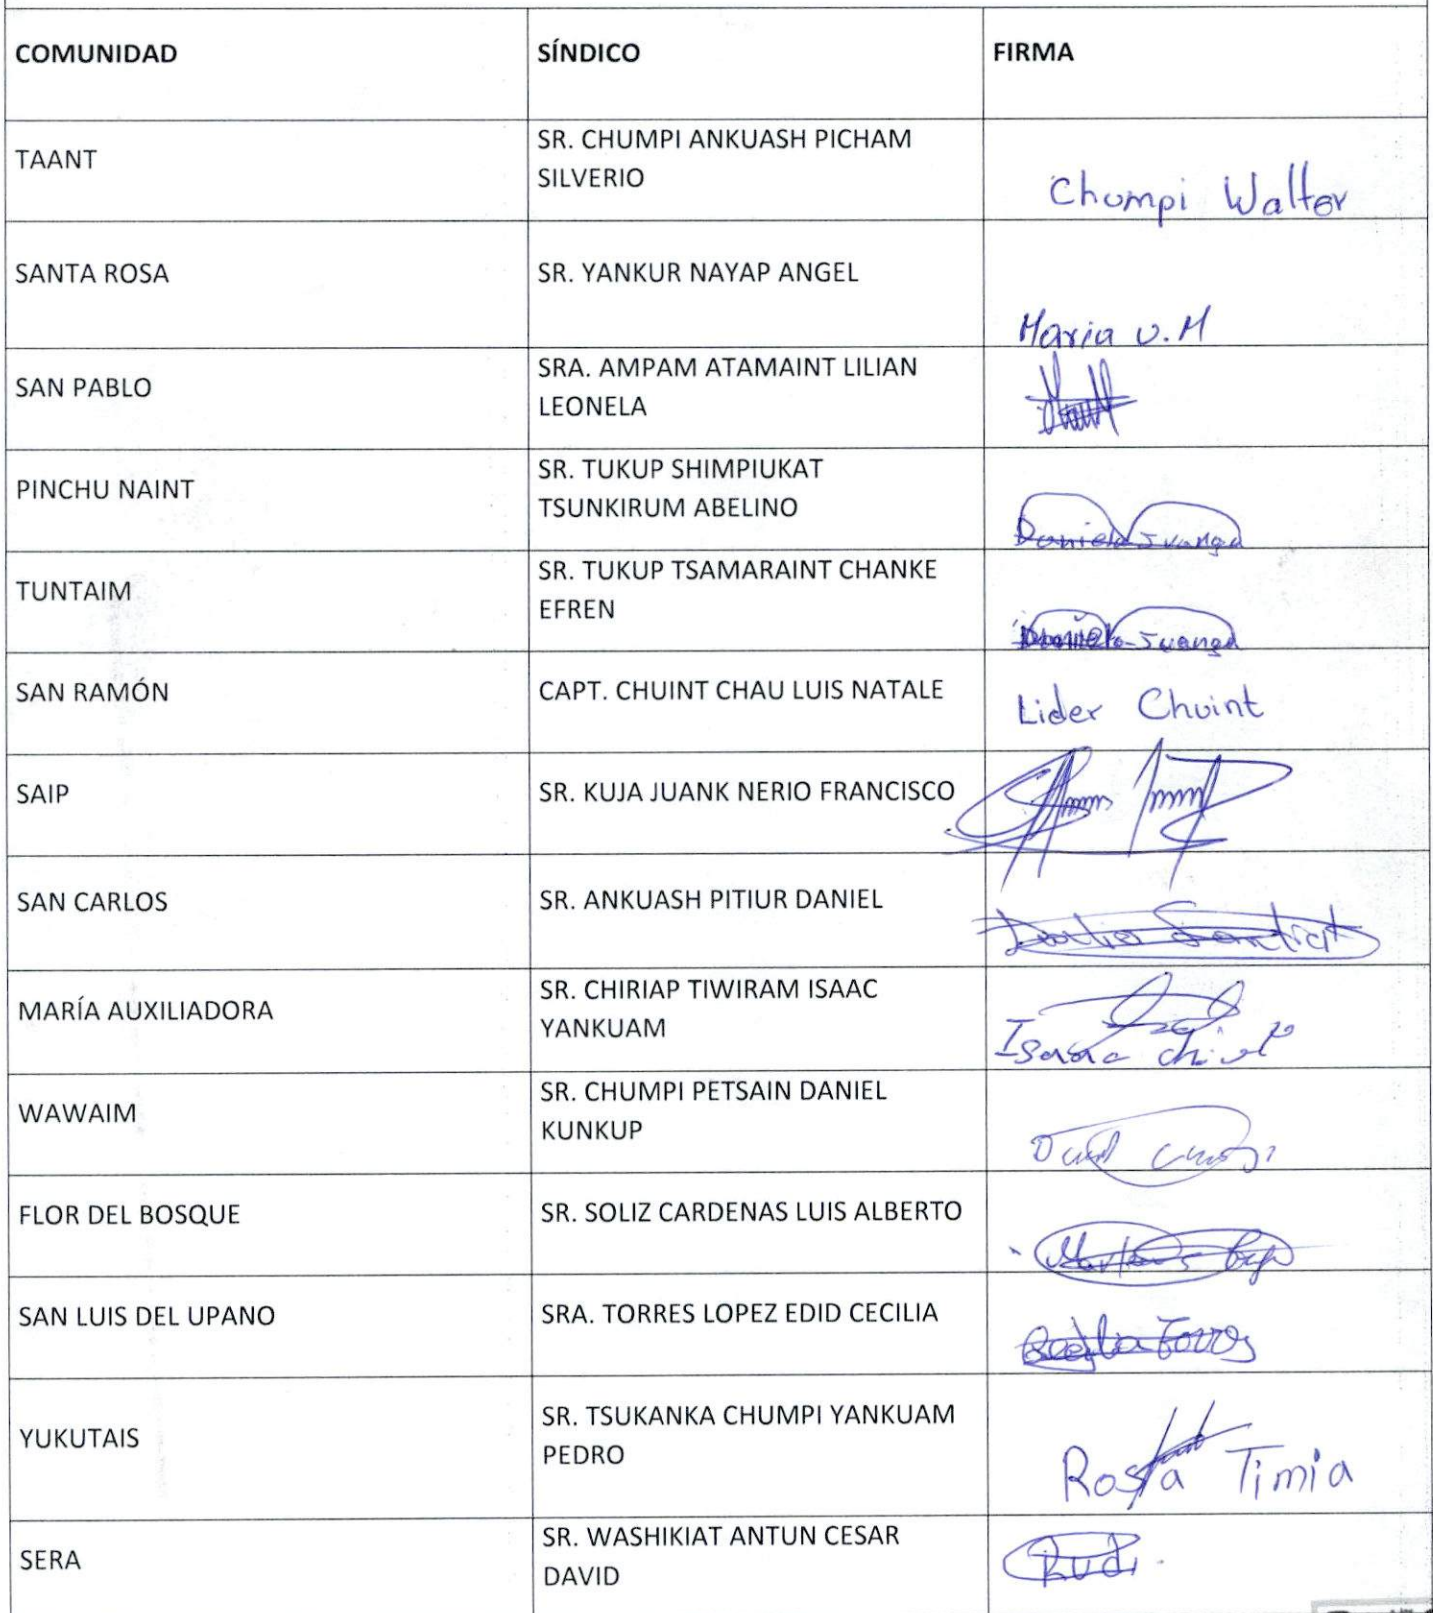 COMUNIDAD SÍNDICO FIRMA
TAANT
SR. CHUMPI ANKUASH PICHAM
SILVERIO
Chumpi Walter
SANTA ROSA
SR. YANKUR NAYAP ANGEL
Maria U.M
SAN PABLO
SRA. AMPAM ATAMAINT LILIAN
LEONELA
PINCHU NAINT
SR. TUKUP SHIMPIUKAT
TSUNKIRUM ABELINO
Daniela Juanga
TUNTAIM
SR. TUKUP TSAMARAINT CHANKE
EFREN
Daniela Juanga
SAN RAMÓN
CAPT. CHUINT CHAU LUIS NATALE
Lider Chuint
SAIP
SR. KUJA JUANK NERIO FRANCISCO
SAN CARLOS
SR. ANKUASH PITIUR DANIEL
MARÍA AUXILIADORA
SR. CHIRIAP TIWIRAM ISAAC
YANKUAM
Isaac
WAWAIM
SR. CHUMPI PETSAIN DANIEL
KUNKUP
FLOR DEL BOSQUE
SR. SOLIZ CARDENAS LUIS ALBERTO
SAN LUIS DEL UPANO
SRA. TORRES LOPEZ EDID CECILIA
YUKUTAIS
SR. TSUKANKA CHUMPI YANKUAM
PEDRO
Rosa Timia
SERA
SR. WASHIKIAT ANTUN CESAR
DAVID
Rudi